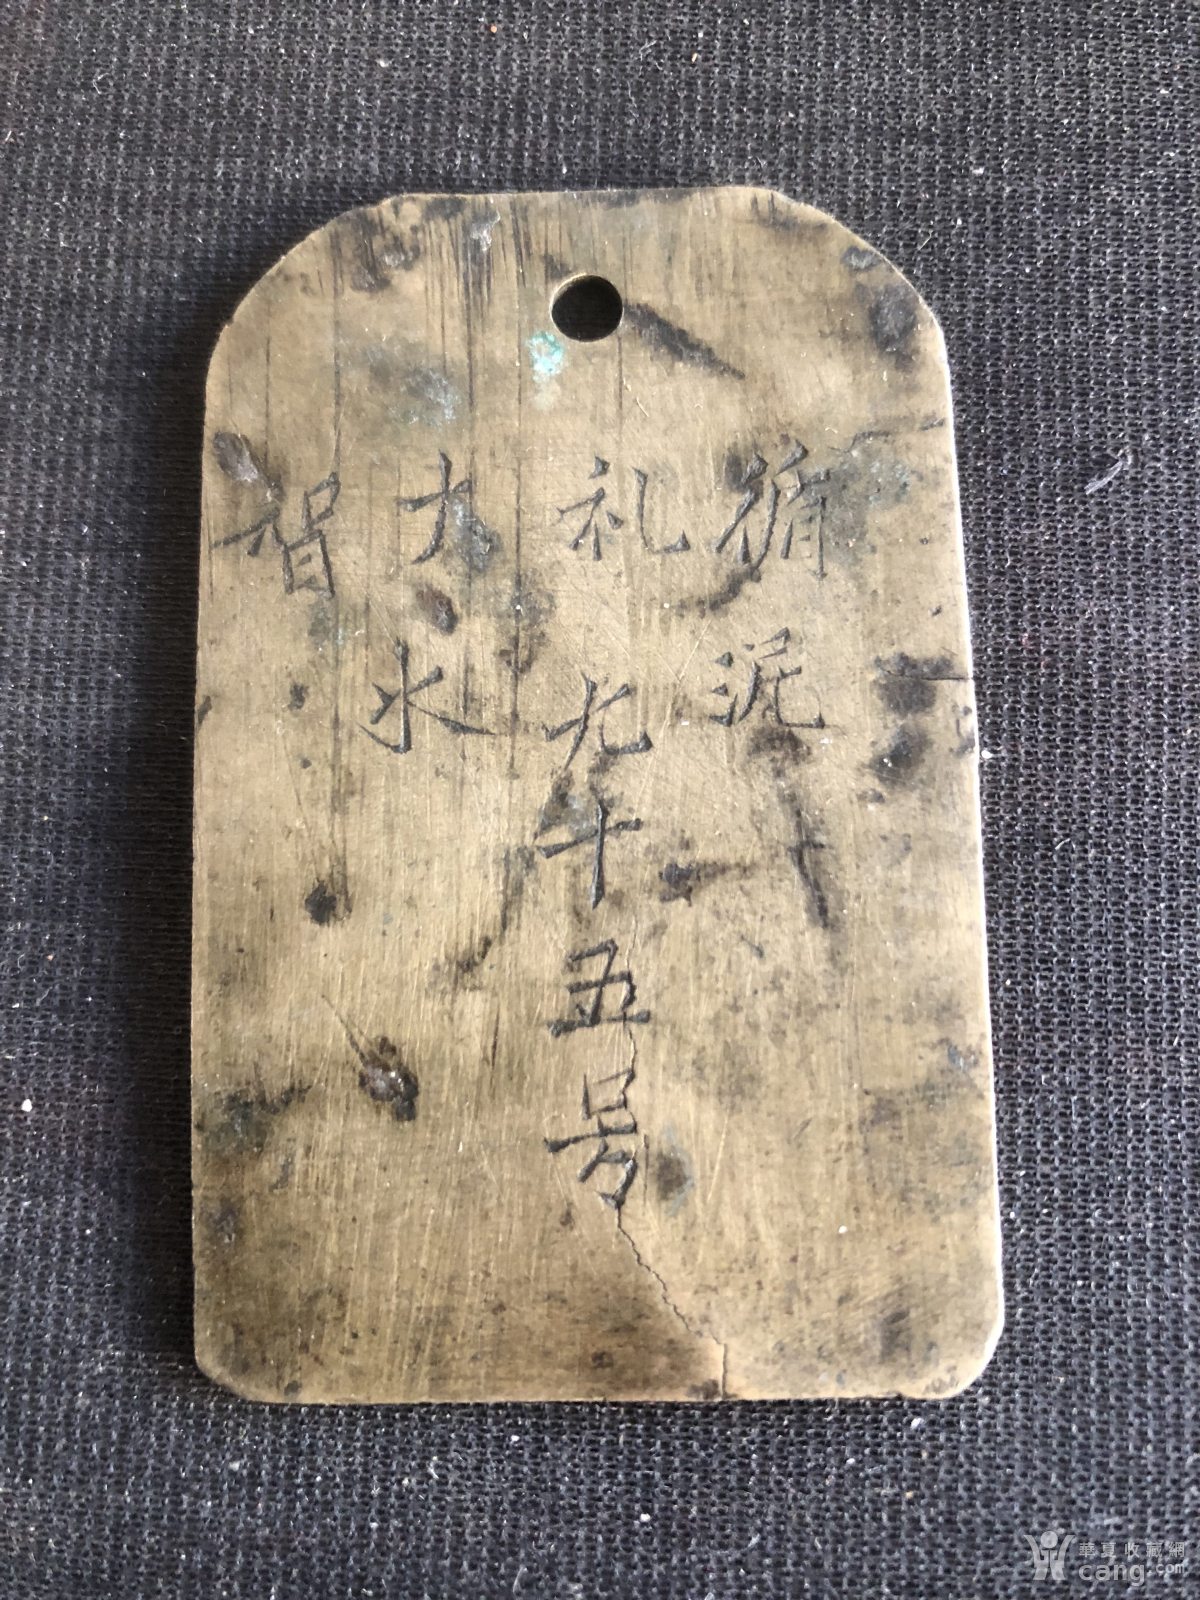 循泥
礼九十五号
水
華夏收藏網
cang.com